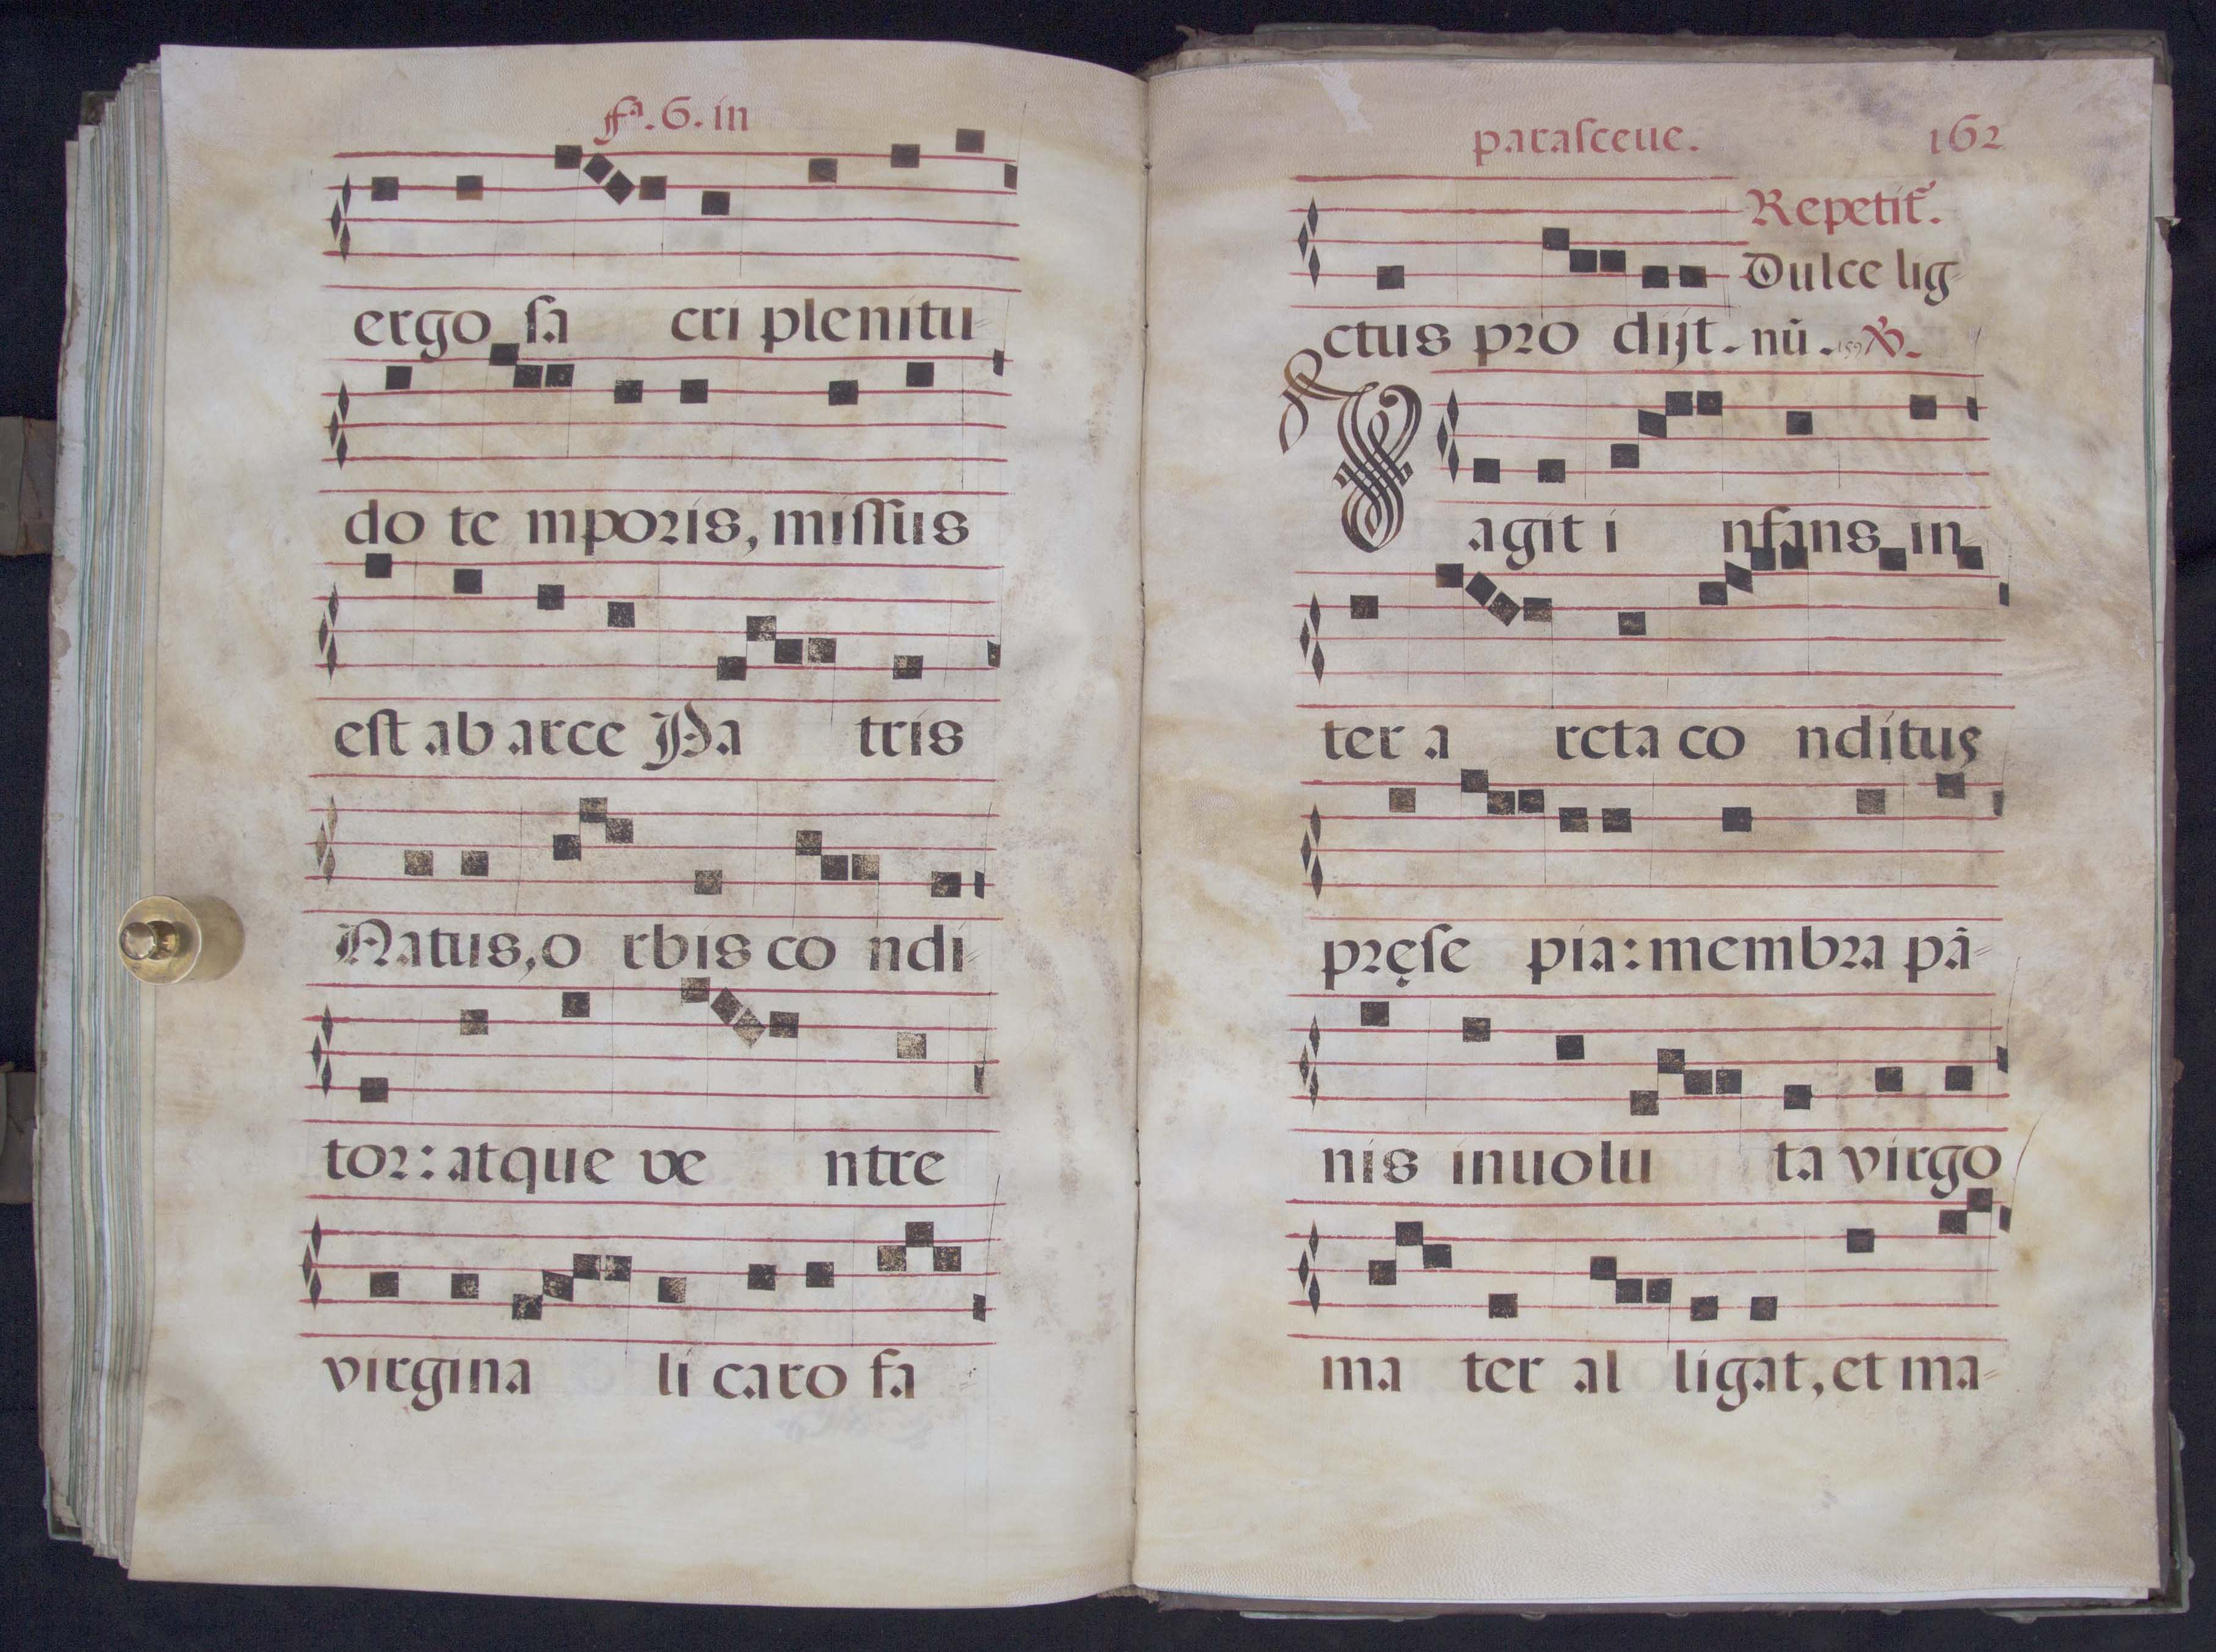 fª. 6. in
ergo sa cri plenitu-
do te mporis, missus
est ab arce Pa tris
Natus, o rbis co ndi-
tor: atque ve ntre
virgina li caro fa-
parasceue. 162
Repetit̃.
Dulce lig-
ctus pro dijt. nũ. 159 ℣.
Vagit i nfans in
ter a rcta co nditus
pręse pia: membra pã-
nis inuolu ta virgo
ma ter al ligat, et ma-